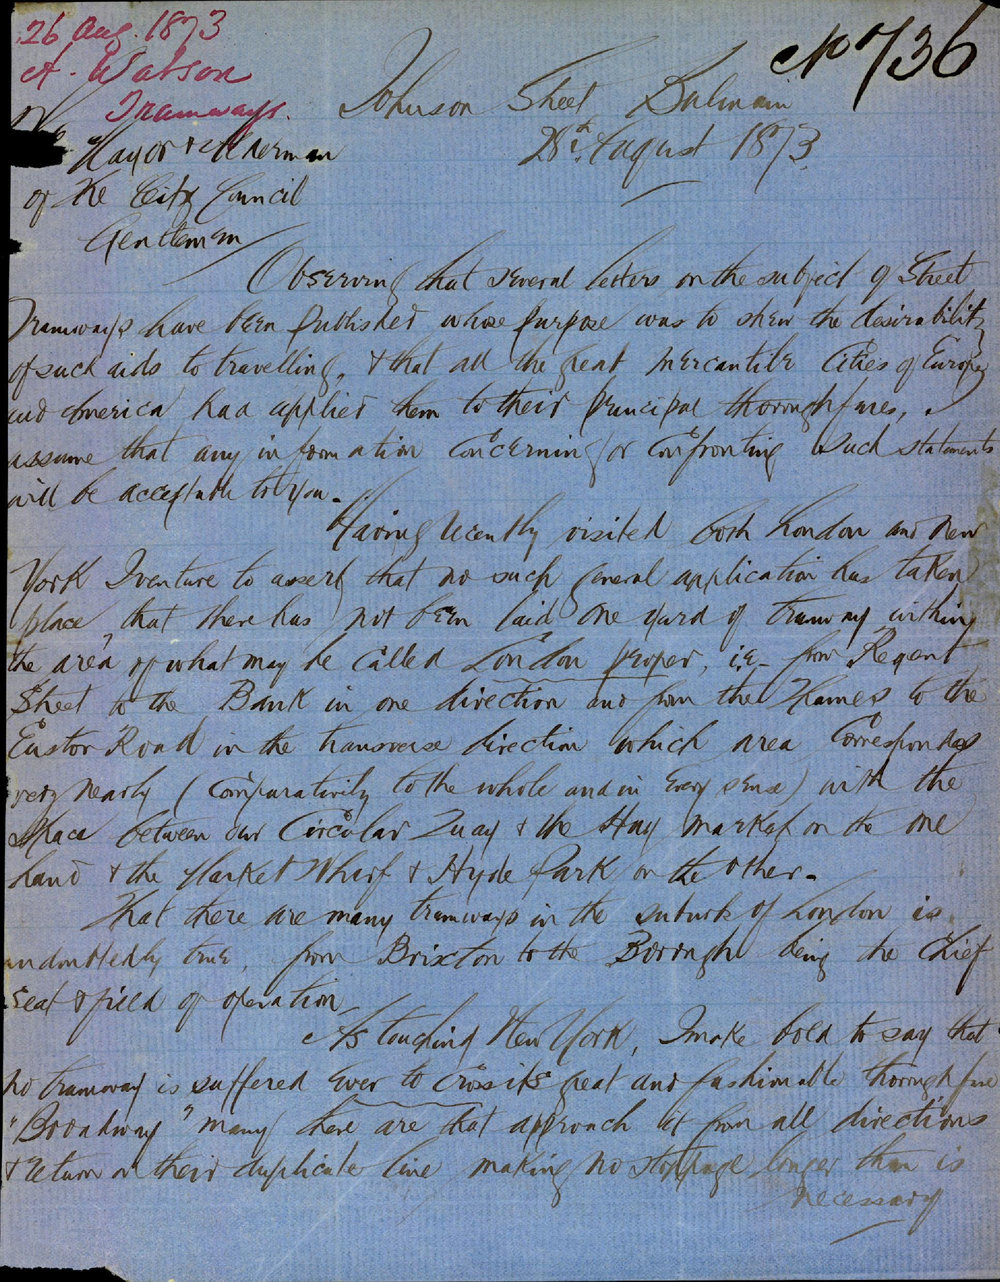 26 Aug. 1873
A. Watson
Tramways.
No 736
Johnson Street Balmain
28th August 1873
The
Mayor & Alderman
of the City Council
Gentlemen
Observing that several letters on the subject of Street
Tramways have been published whose purpose was to shew the desirability
of such aids to travelling, & that all the great Mercantile Cities of Europe
and America had applied them to their principal thoroughfares, I
assume that any information concerning or confronting such statements
will be acceptable to you.
Having recently visited both London and New
York I venture to assert that no such general application has taken
place, that there has not been laid one yard of tramway within
the area of what may be called London proper, i.e. from Regent
Street to the Bank in one direction and from the Thames to the
Euston Road in the transverse direction which area Corresponds
very nearly (comparatively to the whole and in every sense) with the
space between our Circular Quay & the Hay Market on the one
hand & the Market Wharf & Hyde Park on the other.
That there are many tramways in the suburbs of London is
undoubtedly true, from Brixton to the Borough being the Chief
seat & field of operation
As touching New York, I make bold to say that
no tramway is suffered ever to cross its great and fashionable thoroughfare
"Broadway" many there are that approach it from all directions
& return on their duplicate line making no stoppage longer than is
necessary